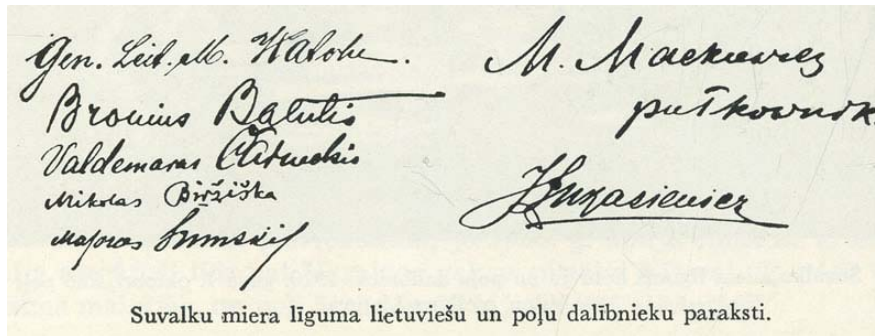 Gen. Leit. M. Katche.
Bronius Balutis
Valdemaras
Mikolas Biržiška
Majoras Šumskis
M. Mackiewicz
pułkownik
J Łukasiewicz
Suvalku miera līguma lietuviešu un poļu dalībnieku paraksti.